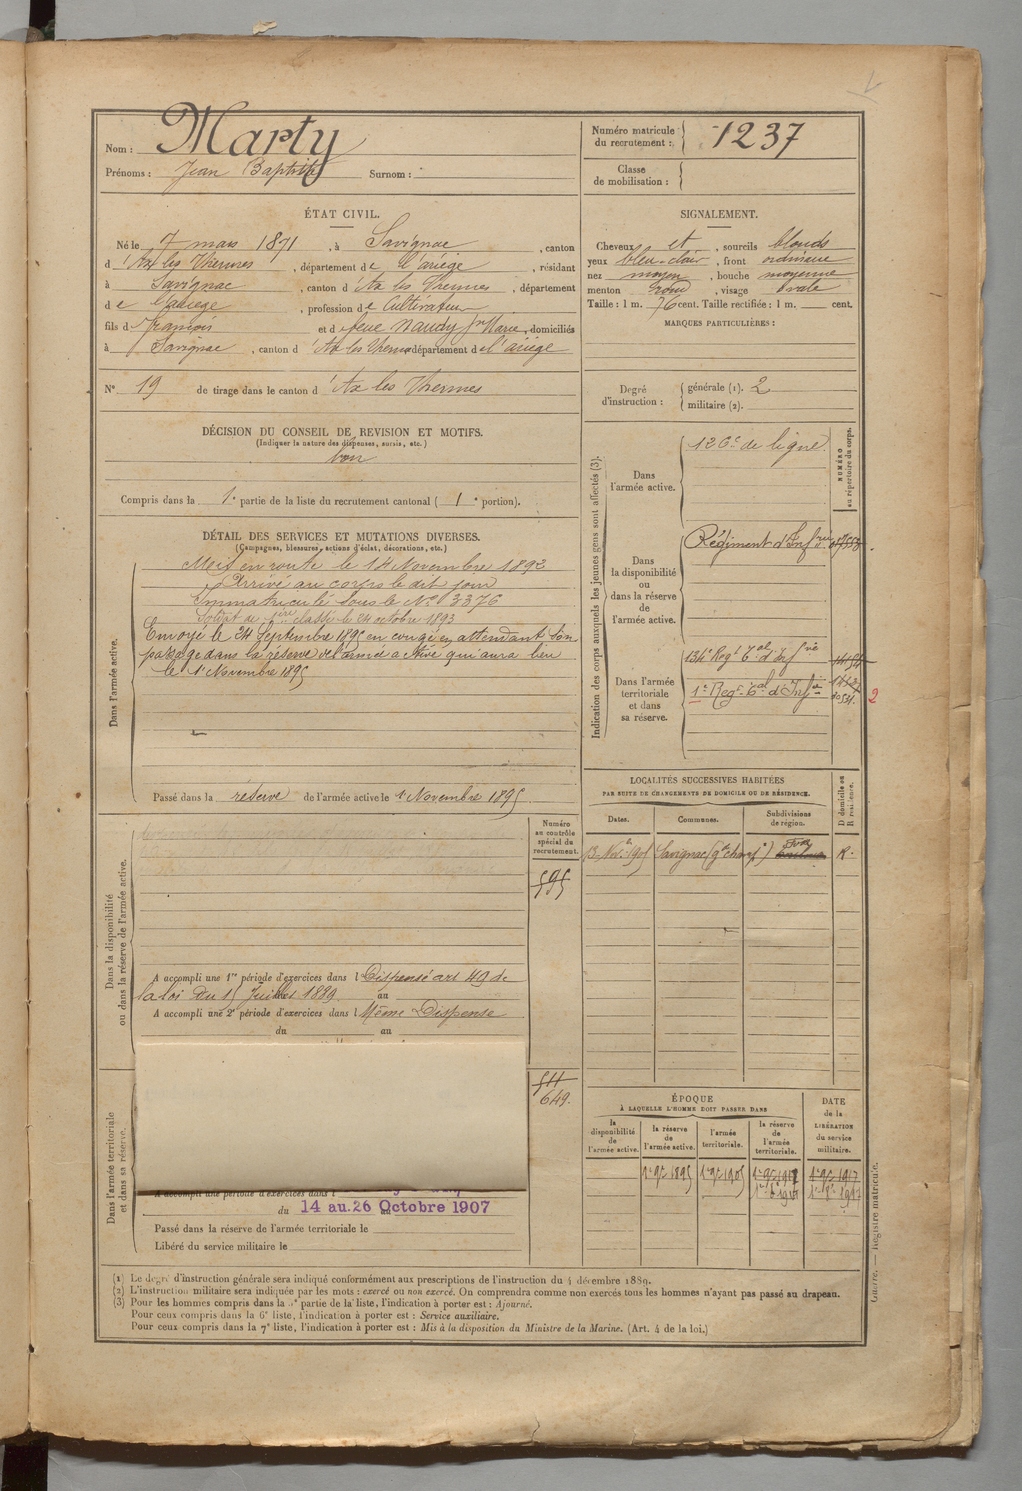 Nom : Marty
Prénoms : Jean Baptiste Surnom :
Numéro matricule du recrutement : 1237
Classe de mobilisation :
ÉTAT CIVIL.
Né le 7 mars 1871, à Savignac, canton
d'Ax les Thermes, département de l'ariège, résidant
à Savignac, canton d'Ax les Thermes, département
de l'ariege, profession de Cultivateur
fils de françois et de feue Naudy Marie, domiciliés
à Savignac, canton d'Ax les Thermes département de l'ariège
N° 19 de tirage dans le canton d'Ax les Thermes
SIGNALEMENT.
Cheveux et, sourcils blonds
yeux bleu-clair, front ordinaire
nez moyen, bouche moyenne
menton rond, visage ovale
Taille : 1 m. 76 cent. Taille rectifiée : 1 m. cent.
MARQUES PARTICULIÈRES :
Degré d'instruction :
générale (1). 2
militaire (2).
DÉCISION DU CONSEIL DE REVISION ET MOTIFS.
(Indiquer la nature des dispenses, sursis, etc.)
bon
Compris dans la 1e partie de la liste du recrutement cantonal ( 1e portion).
DÉTAIL DES SERVICES ET MUTATIONS DIVERSES.
(Campagnes, blessures, actions d'éclat, décorations, etc.)
Dans l'armée active.
Mis en route le 14 Novembre 1892
Arrivé au corps le dit jour
Immatriculé sous le N° 3376
Soldat de 1ère classe le 24 octobre 1893
Envoyé le 24 Septembre 1895 en congé en attendant son
passage dans la réserve de l'armée active qui aura lieu
le 1er Novembre 1895
Passé dans la réserve de l'armée active le 1er Novembre 1895
Indication des corps auxquels les jeunes gens sont affectés (3).
NUMÉRO au répertoire du corps.
Dans l'armée active.
126e de ligne
Dans la disponibilité ou dans la réserve de l'armée active.
Régiment d'Infrie
Dans l'armée territoriale et dans sa réserve.
134e Regt Tal d'Infrie
1er Regt Tal d'Infie
2
LOCALITÉS SUCCESSIVES HABITÉES
PAR SUITE DE CHANGEMENTS DE DOMICILE OU DE RÉSIDENCE.
Dates. Communes. Subdivisions de région. D domicile ou R résidence.
13 Nov. 1905 Savignac R.
Numéro au contrôle spécial du recrutement.
595
Dans la disponibilité ou dans la réserve de l'armée active.
A accompli une 1re période d'exercices dans l Dispensé art 49 de
la loi du 15 Juillet 1889 au
A accompli une 2e période d'exercices dans l Même Dispense
du au
511
649.
Dans l'armée territoriale et dans sa réserve.
A accompli une période d'exercices dans l
du 14 au 26 Octobre 1907
Passé dans la réserve de l'armée territoriale le
Libéré du service militaire le
ÉPOQUE
À LAQUELLE L'HOMME DOIT PASSER DANS
la disponibilité de l'armée active. la réserve de l'armée active. l'armée territoriale. la réserve de l'armée territoriale.
DATE de la LIBÉRATION du service militaire.
1er 9bre 1895 1er 9bre 1905 1er 9bre 1917
(1) Le degré d'instruction générale sera indiqué conformément aux prescriptions de l'instruction du 4 décembre 1889.
(2) L'instruction militaire sera indiquée par les mots : exercé ou non exercé. On comprendra comme non exercés tous les hommes n'ayant pas passé au drapeau.
(3) Pour les hommes compris dans la 5e partie de la liste, l'indication à porter est : Ajourné.
Pour ceux compris dans la 6e liste, l'indication à porter est : Service auxiliaire.
Pour ceux compris dans la 7e liste, l'indication à porter est : Mis à la disposition du Ministre de la Marine. (Art. 4 de la loi.)
Guerre. — Registre matricule.